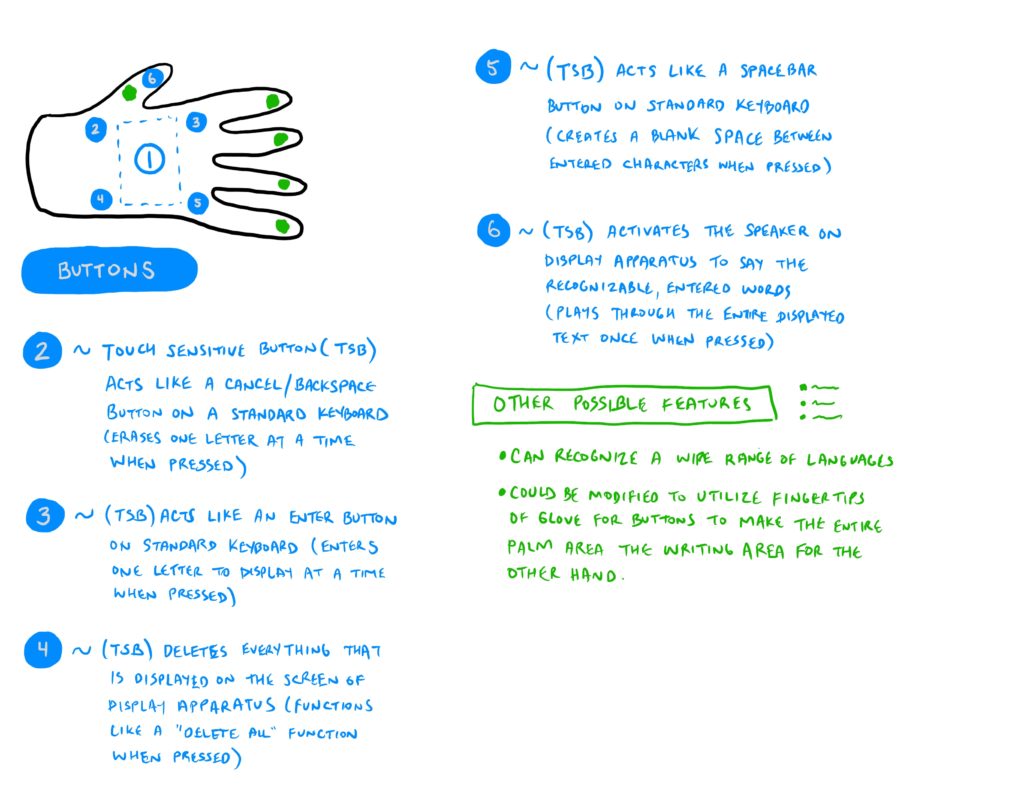 6
2
3
1
4
5
BUTTONS
2 ~ TOUCH SENSITIVE BUTTON (TSB)
ACTS LIKE A CANCEL/BACKSPACE
BUTTON ON A STANDARD KEYBOARD
(ERASES ONE LETTER AT A TIME
WHEN PRESSED)
3 ~ (TSB) ACTS LIKE AN ENTER BUTTON
ON STANDARD KEYBOARD (ENTERS
ONE LETTER TO DISPLAY AT A TIME
WHEN PRESSED)
4 ~ (TSB) DELETES EVERYTHING THAT
IS DISPLAYED ON THE SCREEN OF
DISPLAY APPARATUS (FUNCTIONS
LIKE A "DELETE ALL" FUNCTION
WHEN PRESSED)
5 ~ (TSB) ACTS LIKE A SPACEBAR
BUTTON ON STANDARD KEYBOARD
(CREATES A BLANK SPACE BETWEEN
ENTERED CHARACTERS WHEN PRESSED)
6 ~ (TSB) ACTIVATES THE SPEAKER ON
DISPLAY APPARATUS TO SAY THE
RECOGNIZABLE, ENTERED WORDS
(PLAYS THROUGH THE ENTIRE DISPLAYED
TEXT ONCE WHEN PRESSED)
OTHER POSSIBLE FEATURES
• CAN RECOGNIZE A WIPE RANGE OF LANGUAGES
• COULD BE MODIFIED TO UTILIZE FINGERTIPS
OF GLOVE FOR BUTTONS TO MAKE THE ENTIRE
PALM AREA THE WRITING AREA FOR THE
OTHER HAND.